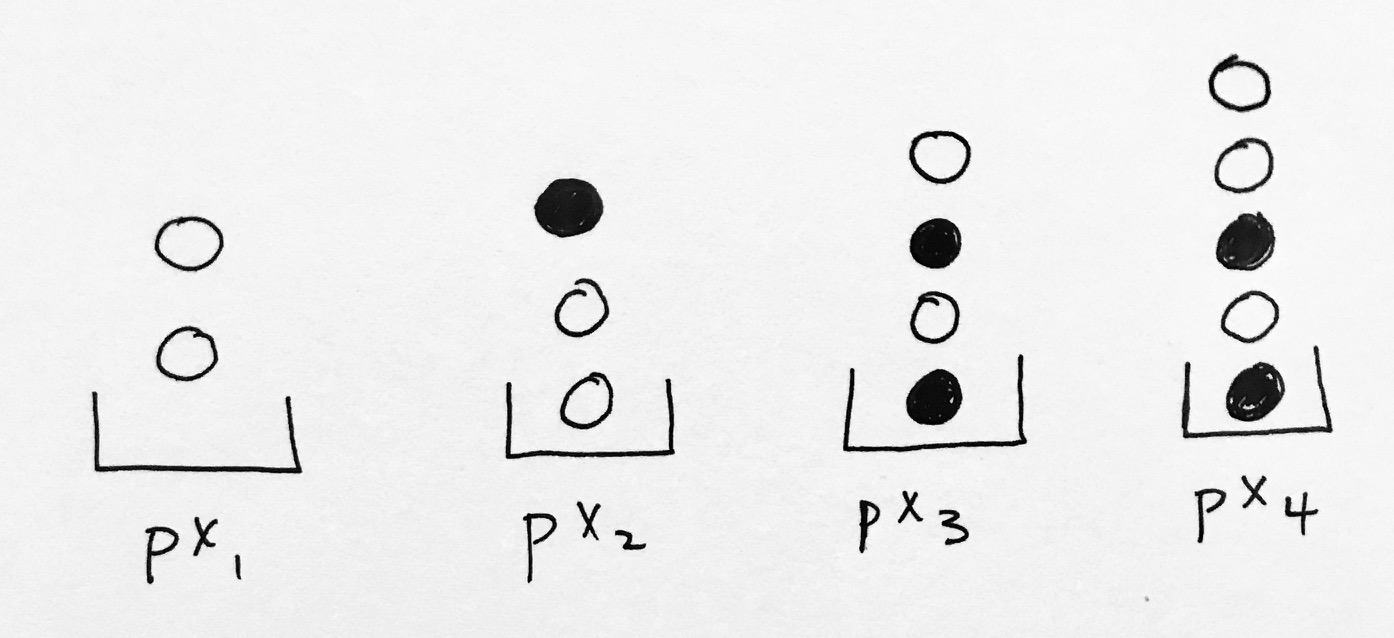 p^x_1 p^x_2 p^x_3 p^x_4